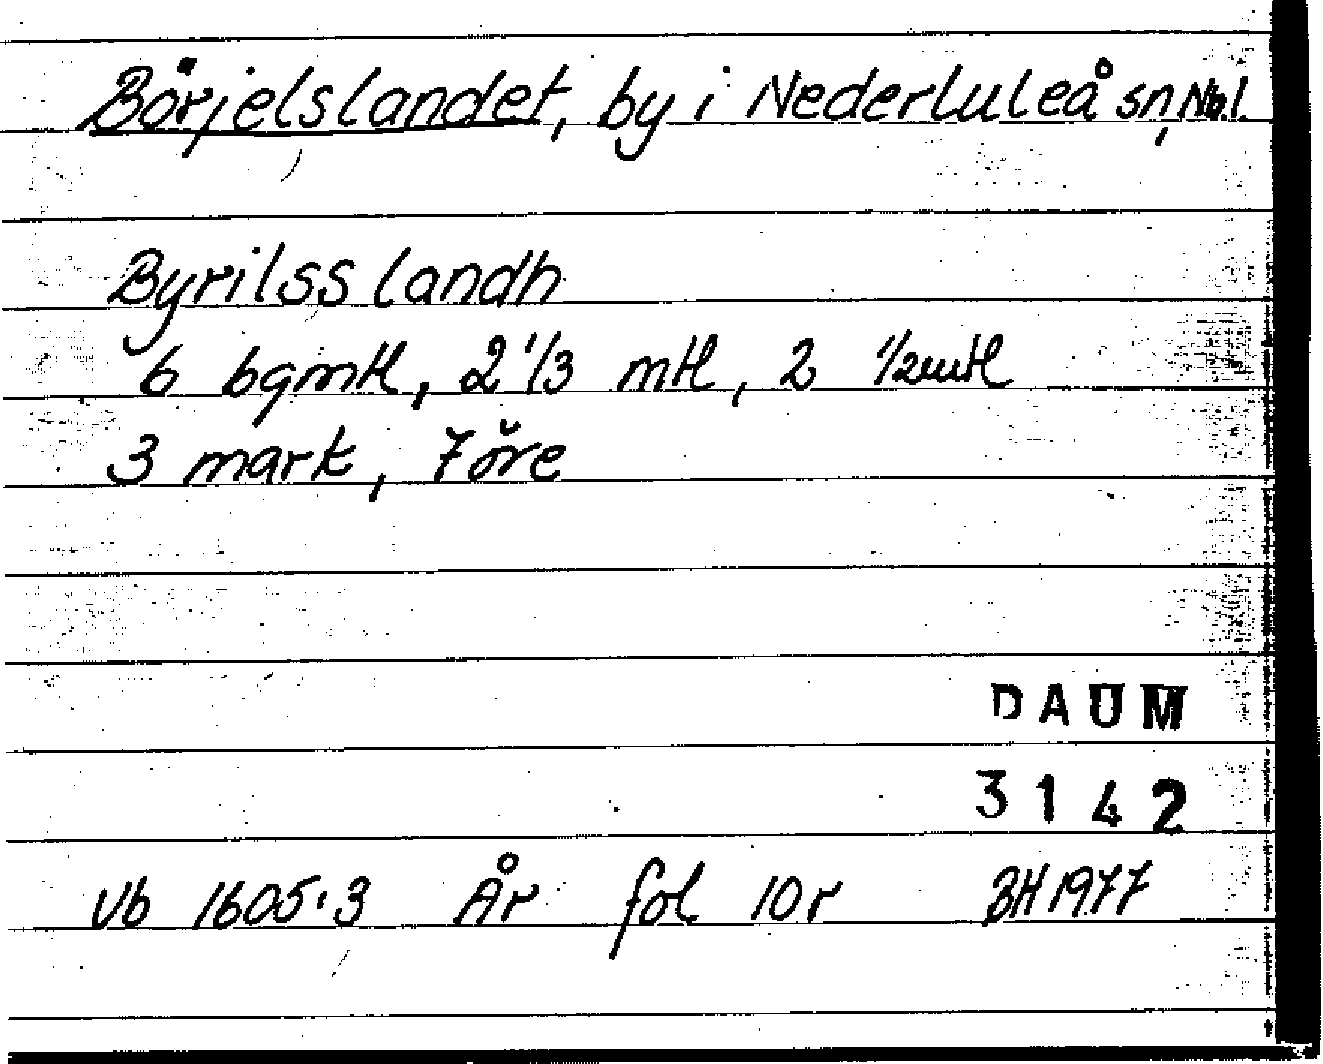 Börjelslandet, by i Nederluleå sn, Nbl.
Byrilss landh
6 bgmtl, 2 1/3 mtl, 2 1/2 mtl
3 mark, 7 öre
DAUM
3142
Vb 1605:3 År fol 10r BH 1977